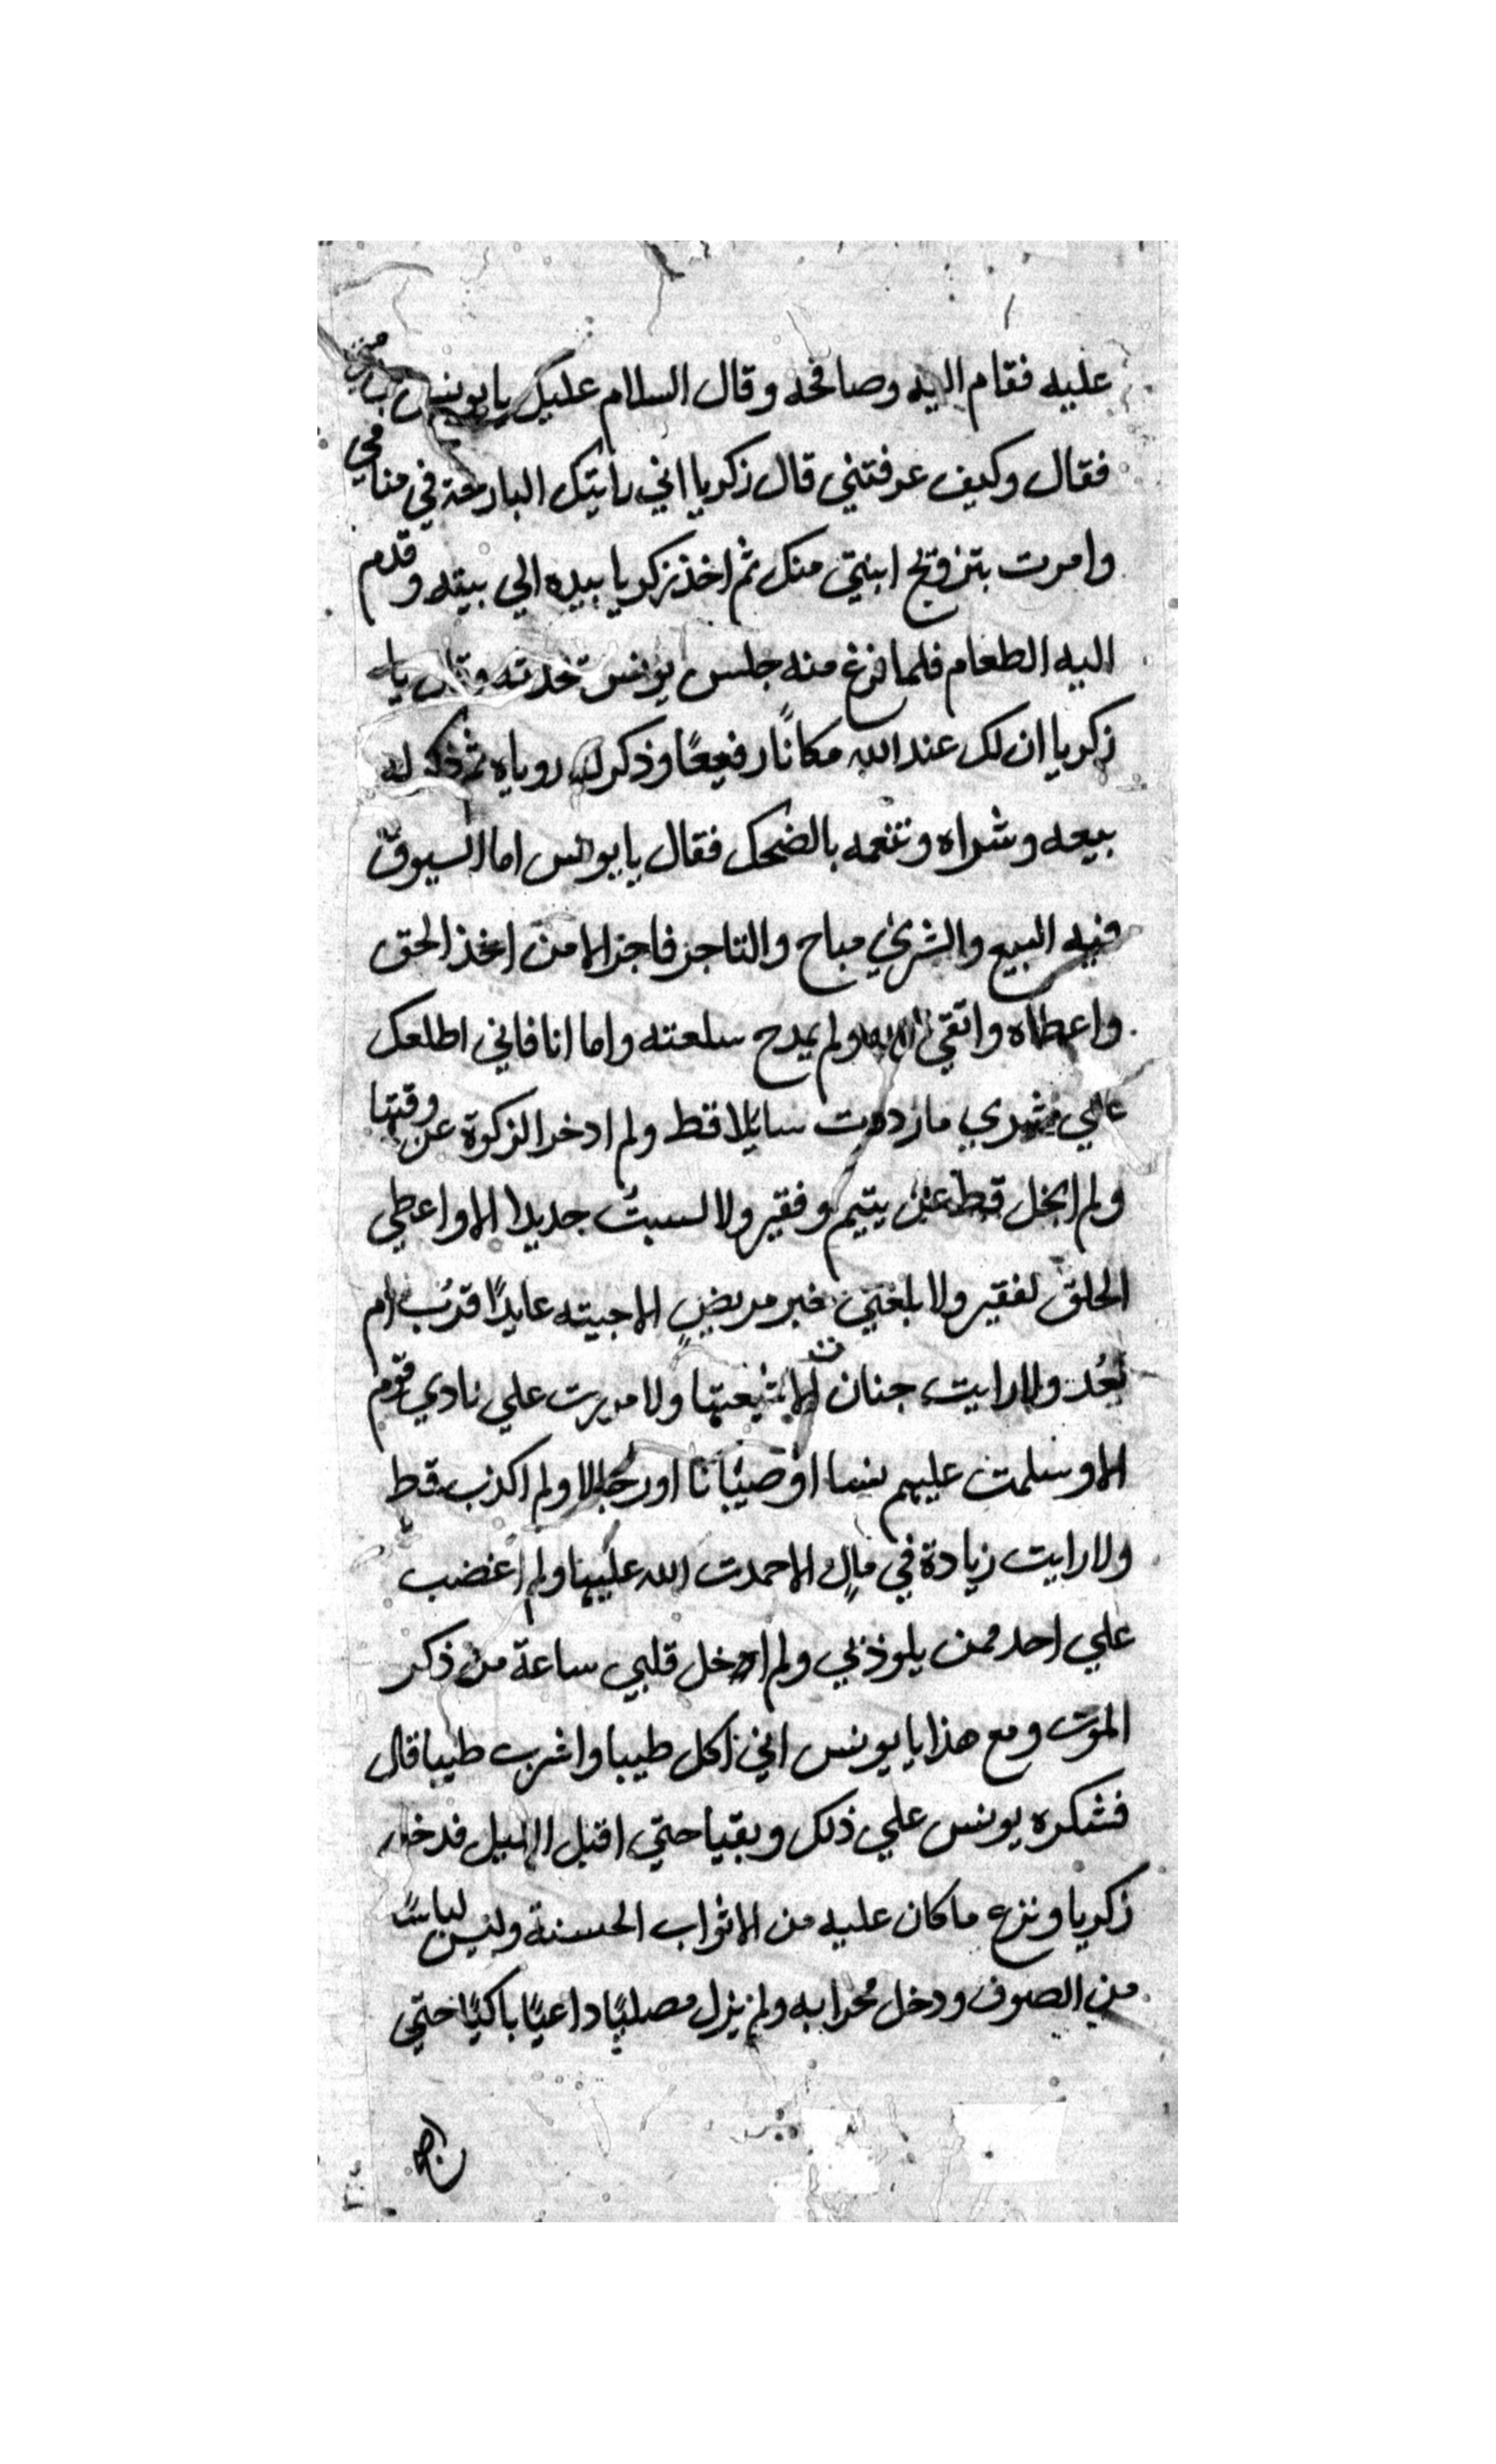 عليه فقام اليه وصافحه وقال السلام عليك يا يونس بن متى
فقال وكيف عرفتني قال زكريا اني رايتك البارحة في منامي
وامرت بتزويج ابنتي منك ثم اخذ زكريا بيده الي بيته وقدم
اليه الطعام فلما فرغ منه جلس يونس تحدثه وقال يا
زكريا ان لك عند الله مكانًا رفيعًا وذكر له روياه ثم ذكر له
بيعه وشراه وتنعمه بالضحك فقال يا يونس اما السوق
ففيه البيع والشرى مباح والتاجر فاجر الا من اخذ الحق
واعطاه واتقي الله ولم يمدح سلعته واما انا فاني اطلعك
علي ما رددت سايلا قط ولم ادخر الزكوة عن وقتها
ولم ابخل قط علي يتيم وفقير ولا لبست جديدا الا واعطي
الخلق لفقير ولا بلغني خبر مريضٍ الا جيته عايدًا قرُب ام
بَعُد ولا رايت جنازة الا شيعتها ولا مررت علي نادي قوم
الا وسلمت عليهم نسا او صبيانا او رجالا ولم اكذب قط
ولا رايت زيادة في مالٍ الا حمدت الله عليها ولم اغضب
علي احد ممن يلوذ بي ولم اخل قلبي ساعة من ذكر
الموت ومع هذا يا يونس اني اكل طيبا واشرب طيبا قال
فشكره يونس علي ذلك وبقيا حتي اقبل الليل فدخل
زكريا ونزع ما كان عليه من الاثواب الحسنة ولبس لباسًا
من الصوف ودخل محرابه ولم يزل مصليًا داعيًا باكيًا حتي